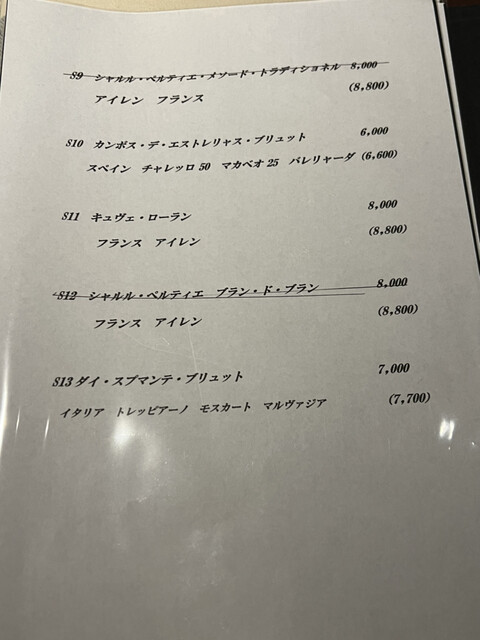 S9 シャルル・ペルティエ・メソード・トラディショネル 8,000
アイレン フランス (8,800)
S10 カンポス・デ・エストレリャス・ブリュット 6,000
スペイン チャレッロ 50 マカベオ 25 パレリャーダ (6,600)
S11 キュヴェ・ローラン 8,000
フランス アイレン (8,800)
S12 シャルル・ペルティエ ブラン・ド・ブラン 8,000
フランス アイレン (8,800)
S13 ダイ・スプマンテ・ブリュット 7,000
イタリア トレッビアーノ モスカート マルヴァジア (7,700)